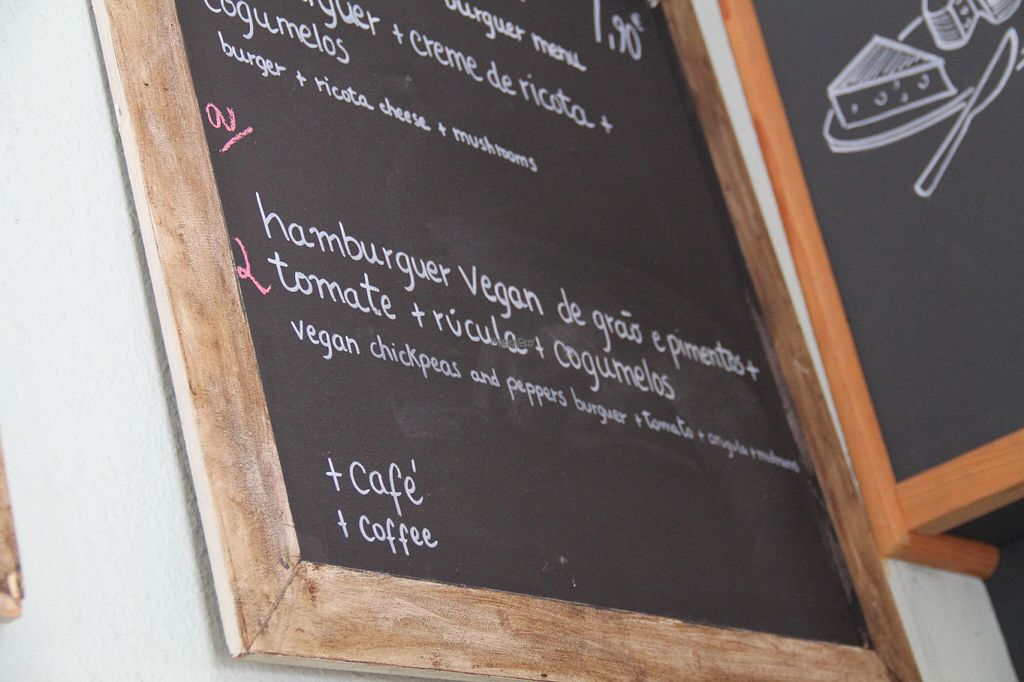 burguer menu
7,90€
burguer + creme de ricota +
cogumelos
burger + ricota cheese + mushrooms
ou
hamburguer vegan de grão e pimentos +
2
tomate + rúcula + cogumelos
vegan chickpeas and peppers burguer + tomato +
+ Café
+ coffee